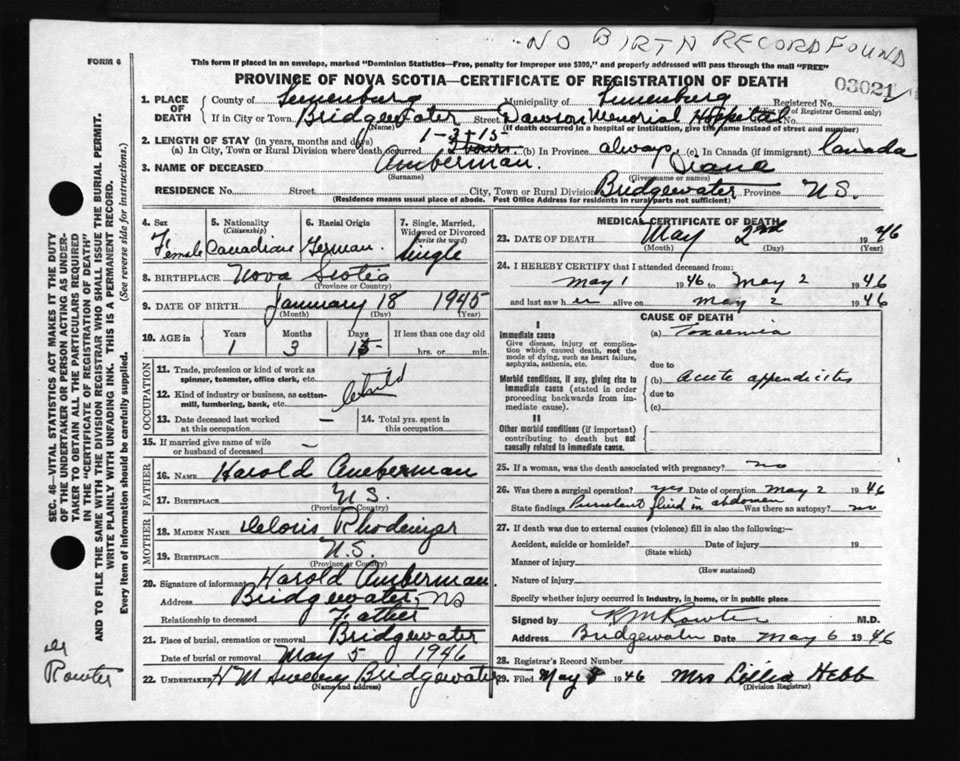 NO BIRTH RECORD FOUND
FORM 6
This form if placed in an envelope, marked "Dominion Statistics—Free, penalty for improper use $300," and properly addressed will pass through the mail "FREE"
PROVINCE OF NOVA SCOTIA—CERTIFICATE OF REGISTRATION OF DEATH
03021
1. PLACE OF DEATH
County of Lunenburg Municipality of Lunenburg Registered No.
(Use of Registrar General only)
If in City or Town. Bridgewater Street Dawson Memorial Hospital
(Name) (If death occurred in a hospital or institution, give the name instead of street and number)
2. LENGTH OF STAY (in years, months and days) 1-3-15
(a) In City, Town or Rural Division where death occurred 2 hours (b) In Province always (c) In Canada (if immigrant) Canada
3. NAME OF DECEASED Amberman. Diana
(Surname) (Given name or names)
RESIDENCE No. Street. City, Town or Rural Division Bridgewater Province N.S.
(Residence means usual place of abode. Post Office Address for residents in rural parts not sufficient)
4. Sex
Female
5. Nationality
(Citizenship)
Canadian
6. Racial Origin
German.
7. Single, Married, Widowed or Divorced
(write the word)
Single
8. BIRTHPLACE Nova Scotia
(Province or Country)
9. DATE OF BIRTH January 18 1945
(Month) (Day) (Year)
10. AGE in Years Months Days If less than one day old
1 3 15 hrs. or min.
OCCUPATION
11. Trade, profession or kind of work as spinner, teamster, office clerk, etc.
12. Kind of industry or business, as cotton-mill, lumbering, bank, etc. Child
13. Date deceased last worked at this occupation —
14. Total yrs. spent in this occupation
15. If married give name of wife or husband of deceased —
FATHER
16. NAME Harold Amberman
17. BIRTHPLACE N.S.
(Province or Country)
MOTHER
18. MAIDEN NAME Deloris Rhodenizer
19. BIRTHPLACE N.S.
(Province or Country)
20. Signature of informant Harold Amberman
Address Bridgewater, NS
Relationship to deceased Father
21. Place of burial, cremation or removal Bridgewater
Date of burial or removal May 5 1946
22. UNDERTAKER H M Sweeny Bridgewater
(Name and address)
MEDICAL CERTIFICATE OF DEATH
23. DATE OF DEATH May 2nd 1946
(Month) (Day) (Year)
24. I HEREBY CERTIFY that I attended deceased from:
May 1 1946 to May 2 1946
and last saw her alive on May 2 1946
CAUSE OF DEATH
I
Immediate cause (a) Toxaemia
Give disease, injury or complication which caused death, not the mode of dying, such as heart failure, asphyxia, asthenia, etc.
due to
Morbid conditions, if any, giving rise to immediate cause (stated in order proceeding backwards from immediate cause).
(b) Acute appendicitis
due to
(c)
II
Other morbid conditions (if important) contributing to death but not causally related to immediate cause.
25. If a woman, was the death associated with pregnancy? no
26. Was there a surgical operation? yes Date of operation May 2 1946
State findings Purulent fluid in abdomen Was there an autopsy? no
27. If death was due to external causes (violence) fill in also the following:—
Accident, suicide or homicide? Date of injury 19
(State which)
Manner of injury
(How sustained)
Nature of injury
Specify whether injury occurred in industry, in home, or in public place
Signed by M.D.
Address Bridgewater Date May 6 1946
28. Registrar's Record Number
29. Filed May 8 1946 Mrs Lillia Hebb
(Division Registrar)
SEC. 46—VITAL STATISTICS ACT MAKES IT THE DUTY
OF THE UNDERTAKER OR PERSON ACTING AS UNDER-
TAKER TO OBTAIN ALL THE PARTICULARS REQUIRED
IN THE "CERTIFICATE OF REGISTRATION OF DEATH"
AND TO FILE THE SAME WITH THE DIVISION REGISTRAR WHO SHALL ISSUE THE BURIAL PERMIT.
WRITE PLAINLY WITH UNFADING INK. THIS IS A PERMANENT RECORD.
Every item of information should be carefully supplied. (See reverse side for instructions.)
Dr
Rowter